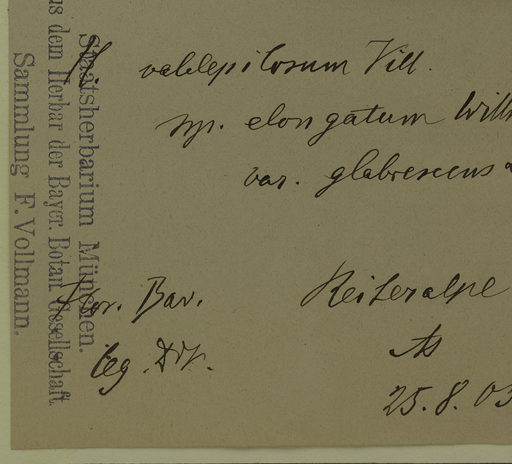 H. valdepilosum Vill.
ssp. elongatum Willd
var. glabrescens
Flor. Bav. Reiteralpe
leg.
25. 8. 03
Staatsherbarium München.
us dem Herbar der Bayer. Botan. Gesellschaft
Sammlung F. Vollmann.